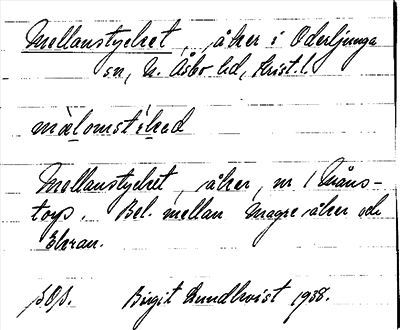 Mellanstycket, åker i Oderljunga
sn, N. Åsbo hd, Krist. l.
Mellanstycket, åker, nr 1 Måns-
torp. Bel. mellan Magre åker och
Ekran.
Birgit Lundkvist 1938.